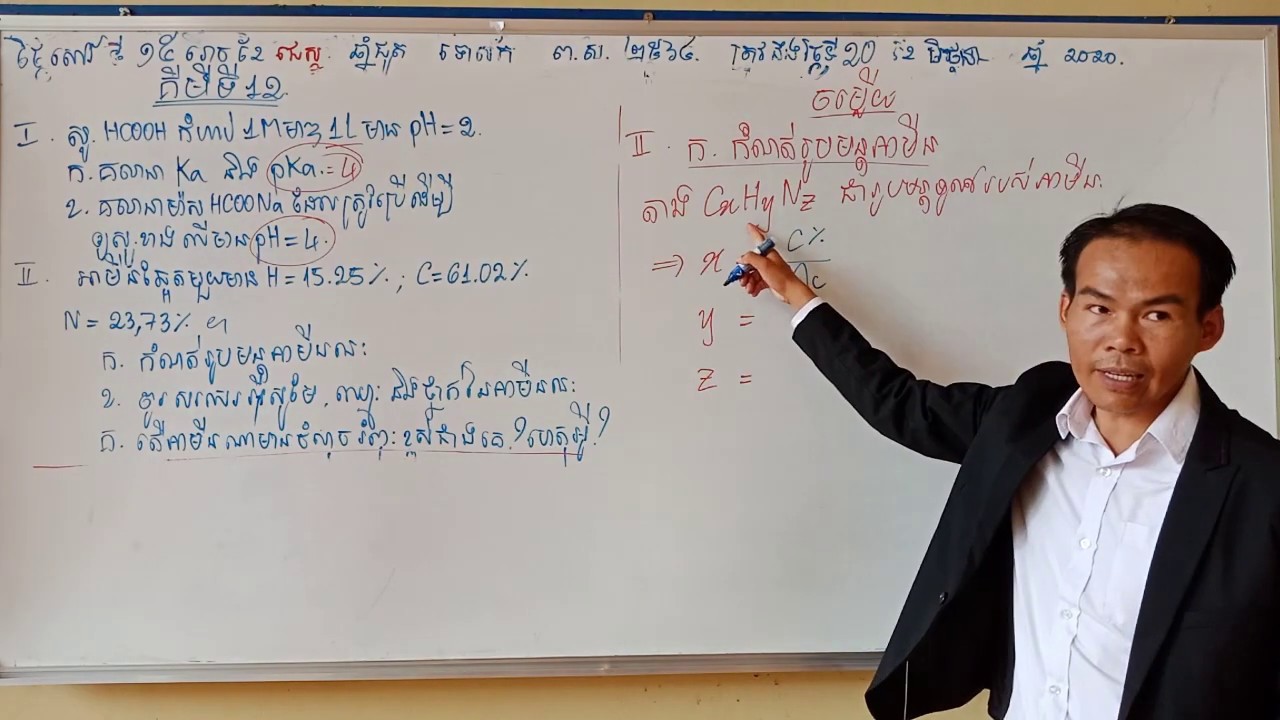 ថ្ងៃសៅរ៍ ១៥ រោច ខែ ជេស្ឋ ឆ្នាំជូត ទោស័ក ព.ស. ២៥៦៤. ត្រូវនឹងថ្ងៃទី 20 ខែ មិថុនា ឆ្នាំ ២០២០.
គីមីទី 12.
I. សូ. HCOOH កំហាប់ 1M មាឌ 1L មាន pH = 2.
ក. គណនា Ka និង pKa = 4
ខ. គណនាម៉ាស HCOONa ដែលត្រូវប្រើដើម្បី
ឲ្យសូ.ខាងលើមាន pH = 4.
II. អាមីនឆ្អែតមួយមាន H = 15.25%. ; C = 61.02%.
N = 23,73%
ក. កំណត់រូបមន្តអាមីននេះ
ខ. ចូរសរសេរអ៊ីសូមែ, ឈ្មោះ និងថ្នាក់នៃអាមីននេះ
គ. តើអាមីនណាមានចំណុចរំពុះខ្ពស់ជាងគេ? ហេតុអ្វី?
ចម្លើយ
II. ក. កំណត់រូបមន្តអាមីន
តាង CxHyNz ជារូបមន្តទូទៅរបស់អាមីន.
⇒ x C%
y =
z =